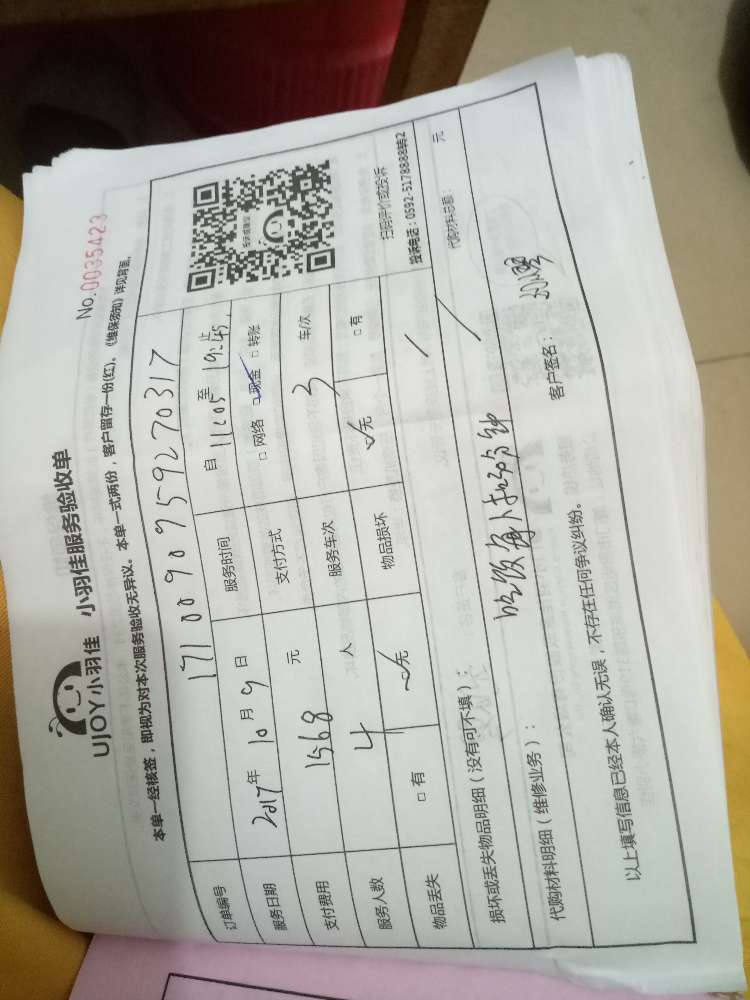 No.0035423
UJOY小羽佳 小羽佳服务验收单
本单一经核签，即视为对本次服务验收无异议。本单一式两份，客户留存一份(红)。《维保须知》详见背面。
订单编号 1710090959270317
服务日期 2017年10月9日 服务时间 自11:05至19:45止
支付费用 1568元 支付方式 □网络 □现金 □转账
服务人数 4人 服务车次 3车/次
物品丢失 □有 无 物品损坏 无 □有
投诉或建议
UJOY小羽佳
扫码评价或投诉
投诉电话：0592-5178888转2
损坏或丢失物品明细（没有可不填）：
代购材料明细（维修业务）：
代购材料总额： 元
吃饭每人扣30分钟
以上填写信息已经本人确认无误，不存在任何争议纠纷。
客户签名：